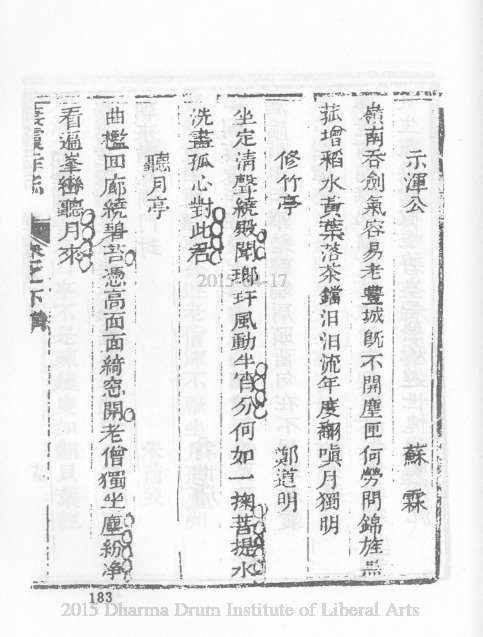 示渾公 蘇霖
嶺南吞劍氣容易老豐城旣不開塵匣何勞問錦旌
菰增稻水黃葉落茶鐺汨汨流年度翻嗔月獨明
修竹亭 鄭道明
坐定清聲繞殿聞瑯玕風動半宵分何如一掬菩提水
洗盡孤心對此君
聽月亭
曲檻回廊繞碧苔憑高面面綺窓開老僧獨坐塵紛净
看遍峯巒聽月來
卷之下
183
2015-04-17
2015 Dharma Drum Institute of Liberal Arts